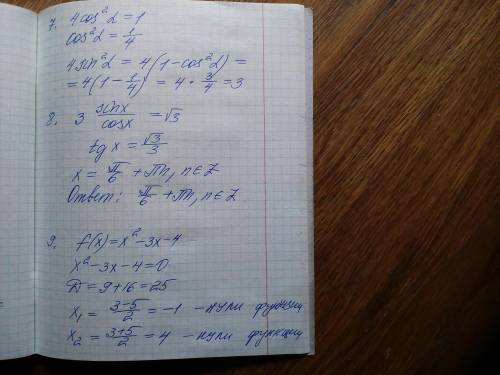 7. 4cos²α = 1
cos²α = 1/4
4sin²α = 4(1 - cos²α) =
= 4(1 - 1/4) = 4 · 3/4 = 3
8. 3 sinx/cosx = √3
tg x = √3/3
x = π/6 + πn, n ∈ Z
Ответ: π/6 + πn, n ∈ Z
9. f(x) = x² - 3x - 4
x² - 3x - 4 = 0
Д = 9 + 16 = 25
x₁ = (3-5)/2 = -1 - нули функции
x₂ = (3+5)/2 = 4 - нули функции